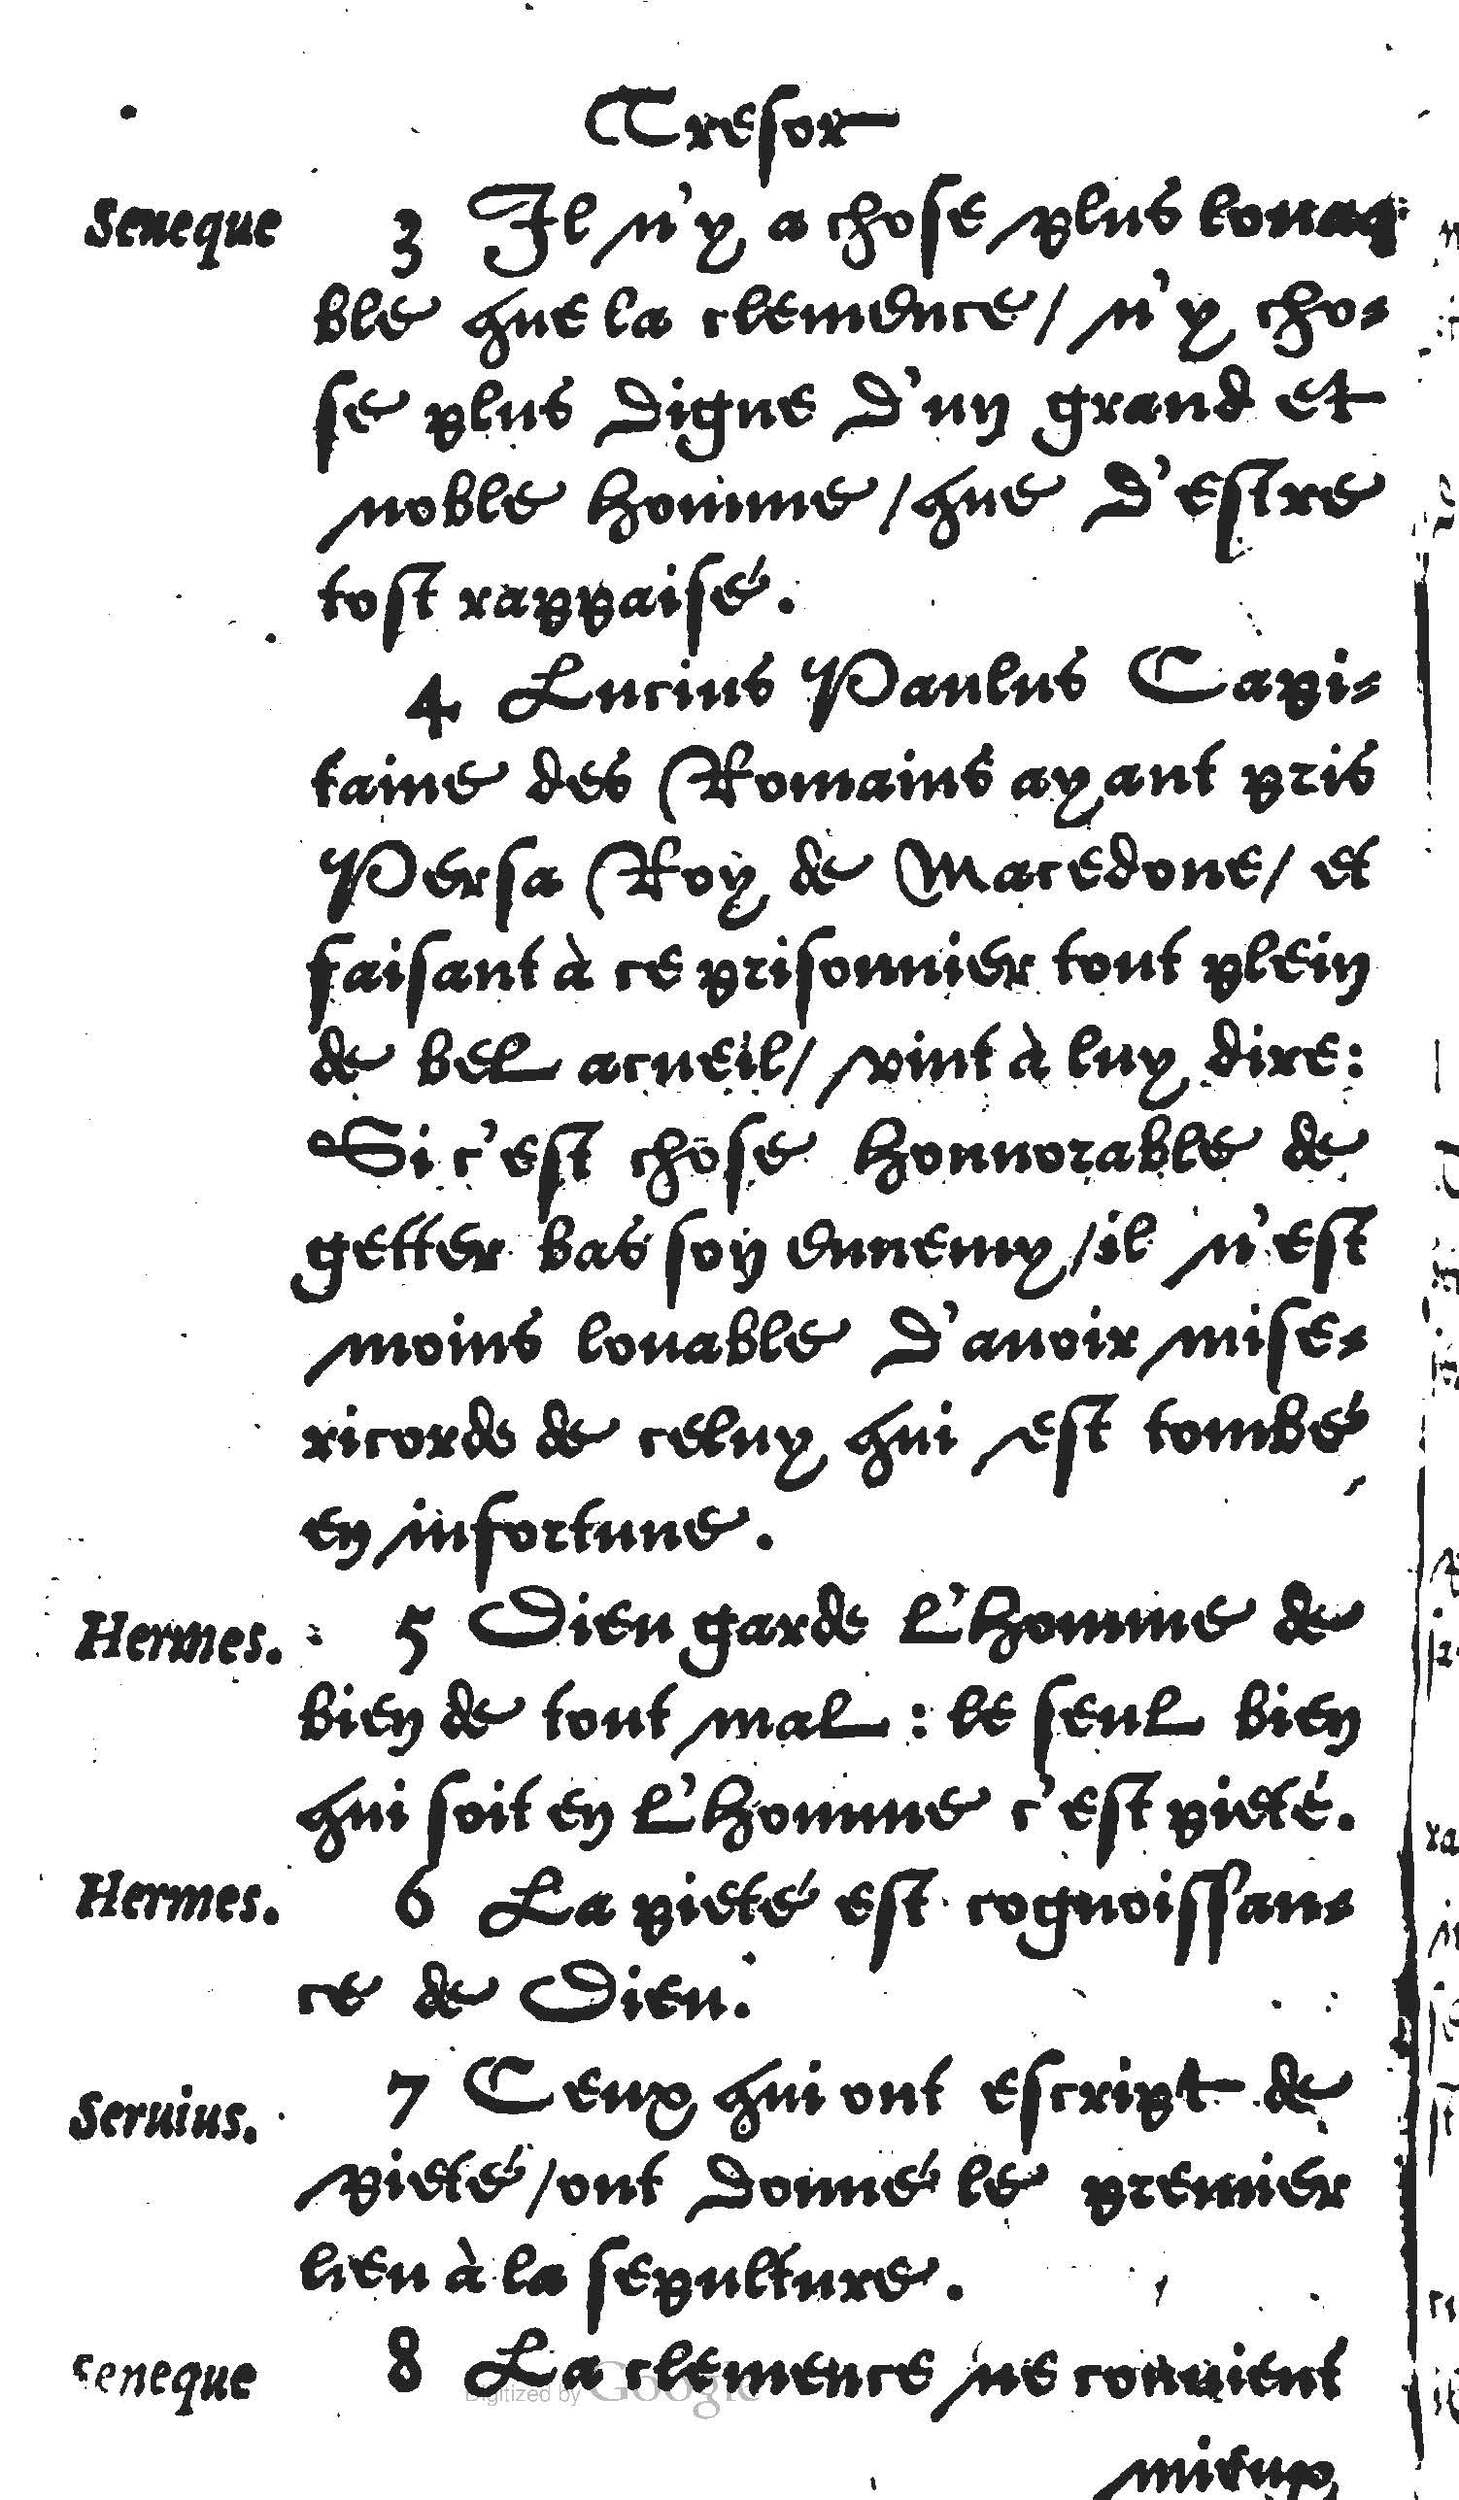 Tresor
Seneque 3 Il n'y a chose plus louaa-
ble que la clemence/ n'y cho-
se plus digne d'un grand et
noble homme/que d'estre
tost rappaisé.
4 Lucius Paulus Capi-
taine des Romains ayant pris
Persa Roy de Macedone/ et
faisant à ce prisonnier tout plein
de bel acueil/ vint à luy dire:
Si c'est chose honnorable de
getter bas son ennemy/il n'est
moins louable d'auoir mise-
ricorde de celuy qui est tombé
en infortune.
Hermes. 5 Dieu garde l'homme de
bien de tout mal : le seul bien
qui soit en l'homme c'est pieté.
Hermes. 6 La pieté est cognoissan-
ce de Dieu.
Seruius. 7 Ceux qui ont escript de
pieté/ont donné le premier
lieu à la sepulture.
Seneque 8 La clemence ne conuient
mieux
Digitized by Google